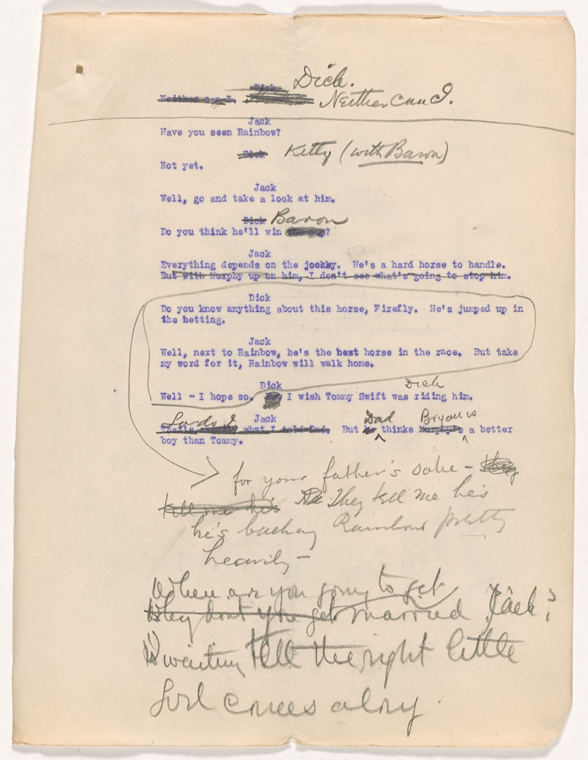 Dick.
Neither can I. Neither can I.
Jack
Have you seen Rainbow?
Dick Kitty (with Baron)
Not yet.
Jack
Well, go and take a look at him.
Dick Baron
Do you think he'll win ?
Jack
Everything depends on the jockky. He's a hard horse to handle.
But with Murphy up on him, I don't see what's going to stop him.
Dick
Do you know anything about this horse, Firefly. He's jumped up in
the betting.
Jack
Well, next to Rainbow, he's the best horse in the race. But take
my word for it, Rainbow will walk home.
Dick Dick
Well - I hope so. I wish Tommy Swift was riding him.
Jack Dad Bryan is
That's what I told Dad. But he thinks Murphy's a better
boy than Tommy.
for your father's sake - they
tell me he's They tell me he's
he's backing Rainbow pretty
heavily -
When are you going to get
Why don't you get married Jack?
I'm waiting till the right little
Girl comes along.